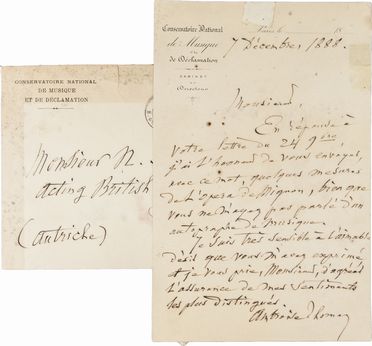 CONSERVATOIRE NATIONAL
DE MUSIQUE
ET DE DÉCLAMATION
Monsieur N.
Acting British
(Autriche)
Conservatoire National
de Musique
et de
Déclamation
CABINET
du
Directeur
Paris, le 18
7 Décembre 1888.
Monsieur,
En réponse à
votre lettre du 24 9bre,
j'ai l'honneur de vous envoyer,
avec ce mot, quelques mesures
de l'opéra de Mignon, bien que
vous ne m'ayez pas parlé d'un
autographe de musique.
Je suis très sensible à l'aimable
désir que vous m'avez exprimé
et je vous prie, Monsieur, d'agréer
l'assurance de mes sentiments
les plus distingués.
Ambroise Thomas